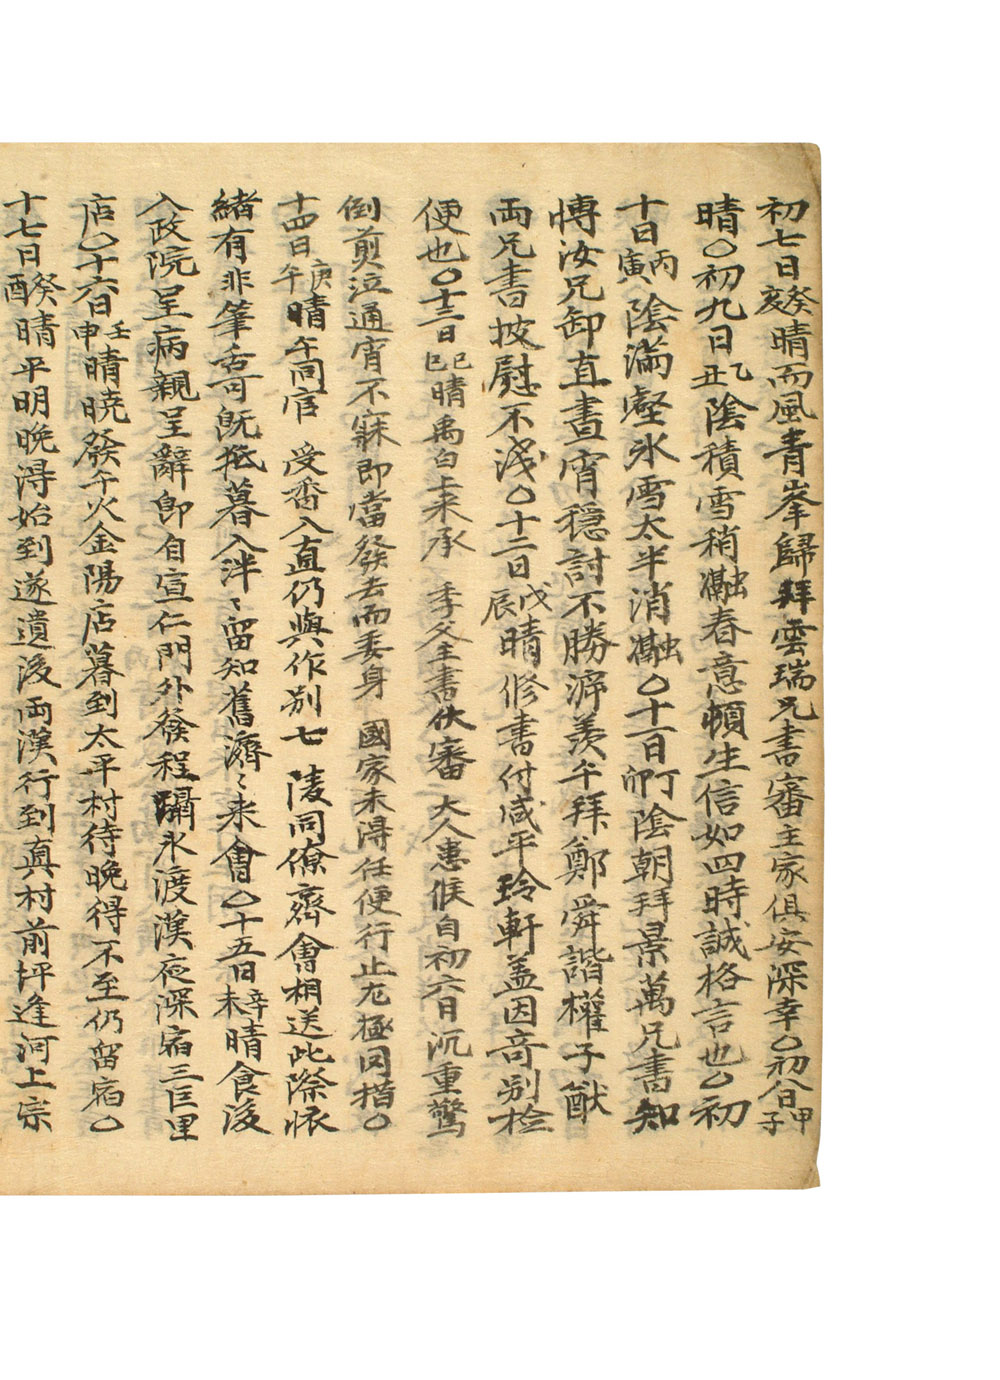 初七日癸亥晴而風青峯歸拜雲瑞兄書審主家俱安深幸○初八日甲子
晴○初九日乙丑陰積雪稍瀜春意頓生信如四時誠格言也○初
十日丙寅陰滿壑氷雪太半消瀜○十一日丁卯陰朝拜景萬兄書知
博汝兄卸直晝宵穩討不勝渀羨午拜鄭舜諧權子猷
両兄書披慰不淺○十二日戊辰晴修書付咸平玲軒盖因竒別檢
便也○十三日己巳晴禹白上来承 季父主書伏審 大人患候自初六日沉重驚
倒煎泣通宵不寐即當發去而委身 國家未淂任便行止尤極罔措○
十四日庚午晴午同官 受香入直仍與作别七 陵同僚齊會相送此際悵
緒有非筆舌可旣抵暮入泮〻留知舊濟〻来會○十五日辛未晴食後
入政院呈病親呈辭即自宣仁門外發程躡氷渡漢夜深宿三巨里
店○十六日壬申晴曉發午火金陽店暮到太平村待晩得不至仍留宿○
十七日癸酉晴平明晩淂始到遂遺後両漢行到眞村前坪逢河上宗